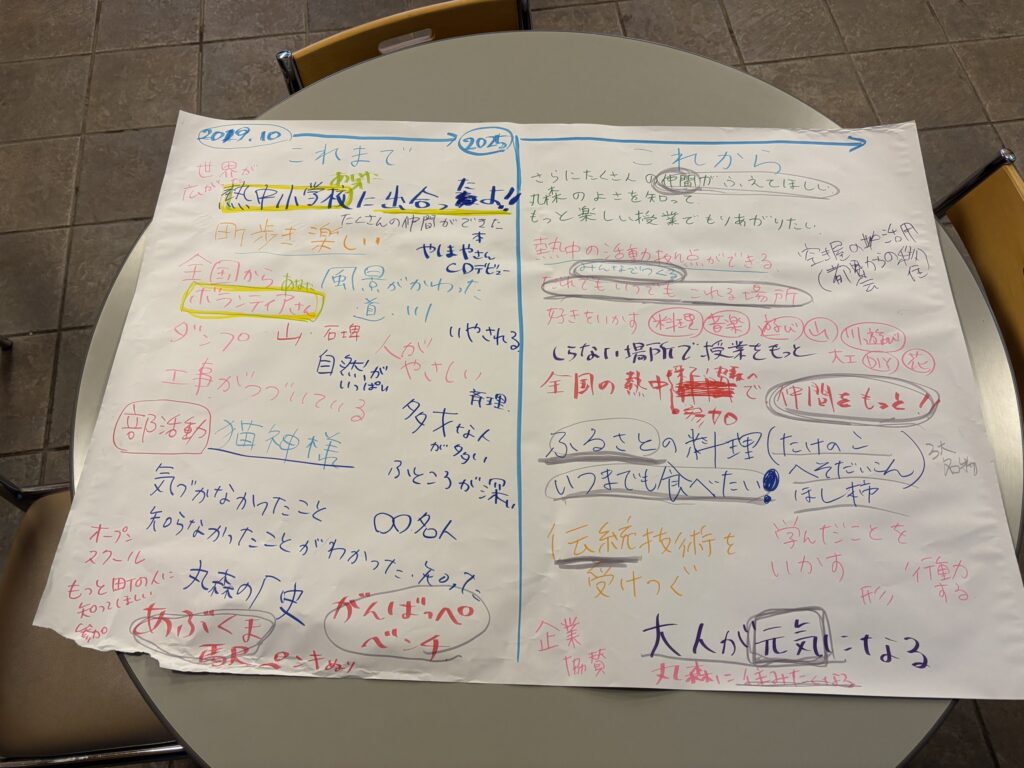 2019.10
2025
これまで
世界が
広が
熱中小学校に出合ったよ!!
たくさんの仲間ができた
町歩き楽しい
本
やはやさん
CDデビュー
全国から
ボランティアさん
風景がかわった
道・川
ダンプ
山・石
人が
やさしい
いやされる
自然が
いっぱい
工事がつづいている
料理
多才な人
が多い
部活動
猫神様
ふところが深い
気づかなかったこと
〇〇名人
知らなかったことがわかった・知った
オープン
スクール
もっと町の人に
知ってほしい
参加
丸森の歴史
あぶくま
駅ペンキぬり
がんばっぺ
ベンチ
これから
さらにたくさんの仲間がふえてほしい
丸森のよさを知って
もっと楽しい授業でもりあがりたい
熱中の活動拠点ができる
みんなでつくる
だれでもいつでもこれる場所
空き屋の活用
好きをいかす
料理
音楽
遊び
山
川遊び
大工
DIY
花
しらない場所で授業をもっと
全国の熱中
で
参加
仲間をもっと!
ふるさとの料理(たけのこ
へそだいこん
ほし柿
3大
名物
いつまでも食べたい!
伝統技術を
受けつぐ
学んだことを
いかす
行動
する
企業
協賛
大人が元気になる
丸森に住みたくなる